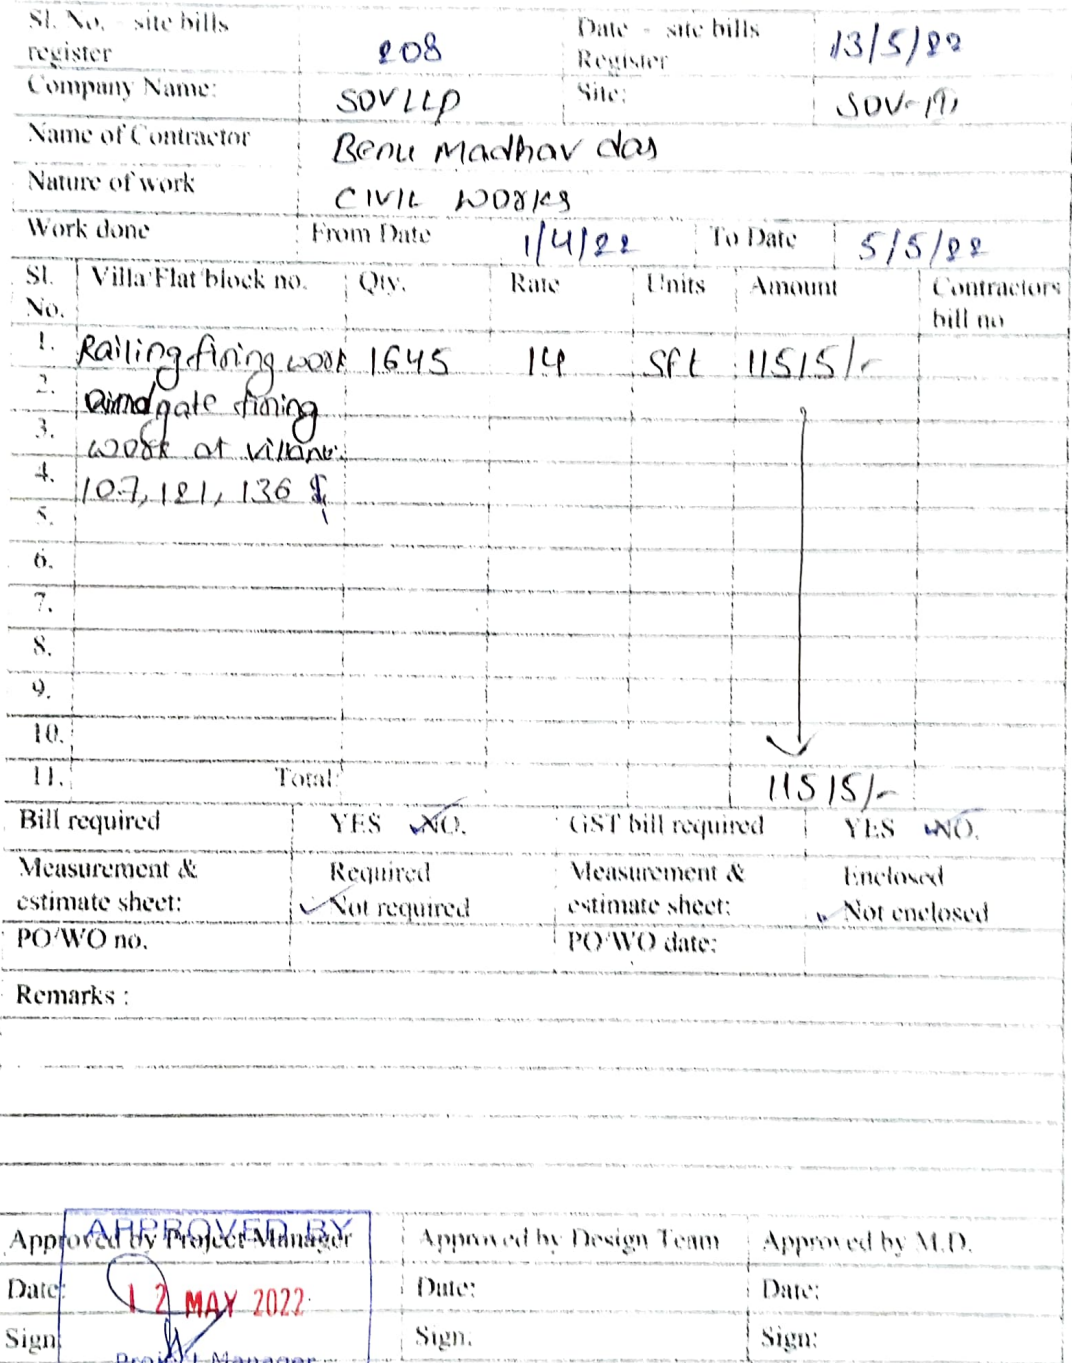 Sl. No. - site bills register 208 Date - site bills Register 13/5/22
Company Name: SOV LLP Site: SOV-III
Name of Contractor Benu Madhav das
Nature of work CIVIL WORKS
Work done From Date 1/4/22 To Date 5/5/22
Sl. No. Villa/Flat/block no. Qty. Rate Units Amount Contractors bill no
1. Railing fixing work 1645 14 Sft 11515/-
2. and gate fixing
3. work at villa no:
4. 107, 121, 136
5.
6.
7.
8.
9.
10.
11. Total: 11515/-
Bill required YES NO. GST bill required YES NO.
Measurement & estimate sheet: Required Not required Measurement & estimate sheet: Enclosed Not enclosed
PO/WO no. PO/WO date:
Remarks :
APPROVED BY
Approved by Project Manager Approved by Design Team Approved by M.D.
Date: 12 MAY 2022 Date: Date:
Sign: Sign: Sign:
Project Manager